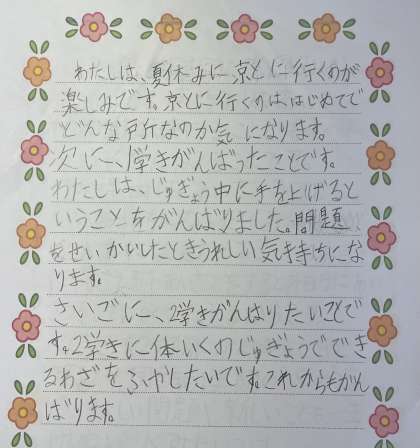 わたしは、夏休みに京とに行くのが
楽しみです。京とに行くのは、はじめてで
どんな戸斤なのか気になります。
次に、1学きがんばったことです。
わたしは、じゅぎょう中に手を上げると
いうことをがんばりました。問題、
をせいかいしたときうれしい気持ちにな
ります。
さいごに、2学きがんばりたいことで
す。2学きに体いくのじゅぎょうででき
るわざをふやしたいです。これからもがん
ばります。